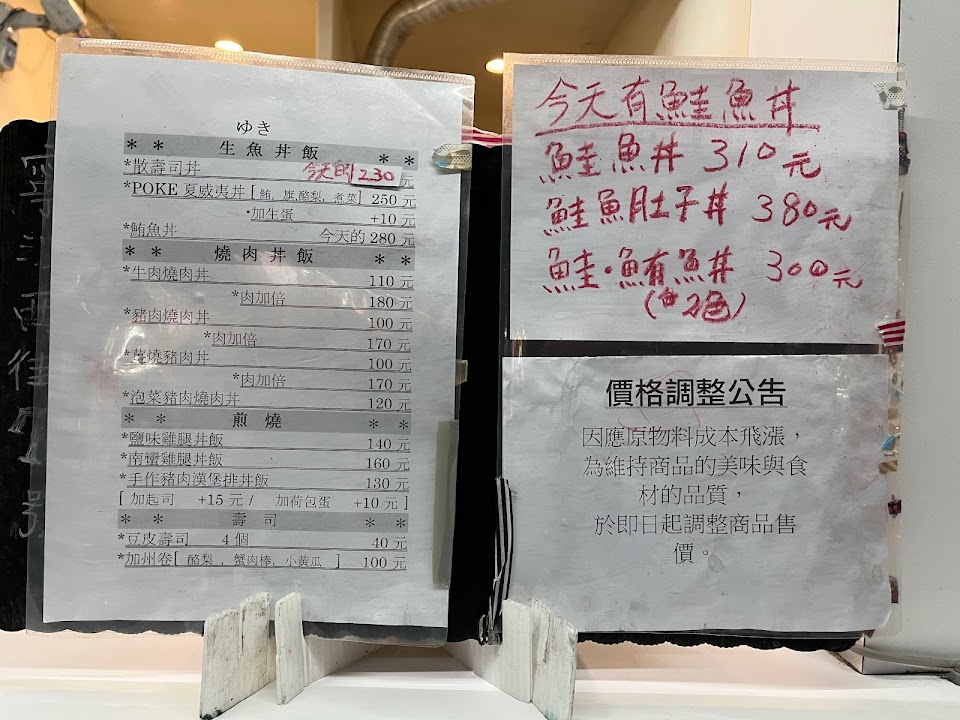 ゆき
* * 生魚丼飯 * *
*散壽司丼 今天的 230 元
*POKE 夏威夷丼 [ 鮪, 旗,酪梨, 煮菜 ] 250 元
·加生蛋 +10 元
*鮪魚丼 今天的 280 元
* * 燒肉丼飯 * *
*牛肉燒肉丼 110 元
*肉加倍 180 元
*豬肉燒肉丼 100 元
*肉加倍 170 元
*薑燒豬肉丼 100 元
*肉加倍 170 元
*泡菜豬肉燒肉丼 120 元
* * 煎燒 * *
*鹽味雞腿丼飯 140 元
*南蠻雞腿丼飯 160 元
*手作豬肉漢堡排丼飯 130 元
[ 加起司 +15 元 / 加荷包蛋 +10 元 ]
* * 壽司 * *
*豆皮壽司 4 個 40 元
*加州卷[ 酪梨 , 蟹肉棒, 小黃瓜 ] 100 元
今天有鮭魚丼
鮭魚丼 310元
鮭魚肚子丼 380元
鮭·鮪魚丼 300元
2色)
價格調整公告
因應原物料成本飛漲，
為維持商品的美味與食
材的品質，
於即日起調整商品售
價。